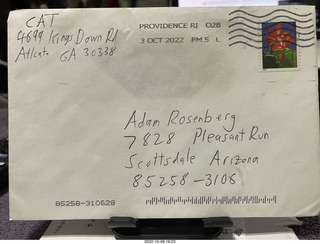 CAT
4699 Kings Down Rd
Atlanta GA 30338
PROVIDENCE RI 028
3 OCT 2022 PM 5 L
Adam Rosenberg
7828 Pleasant Run
Scottsdale Arizona
85258-3106
85258-310628
2022-10-09 18:23